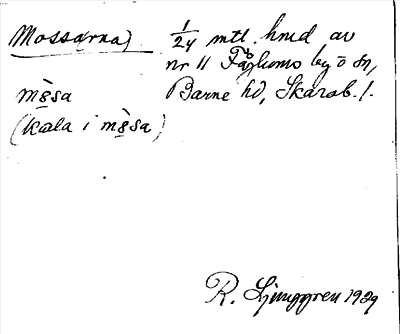 Mossarna) 1/24 mtl. hmd av
nr 11 Fåglums by o sn,
mòsa Barne hd, Skarab. l.
(kala i mòsa)
R. Ljunggren 1929